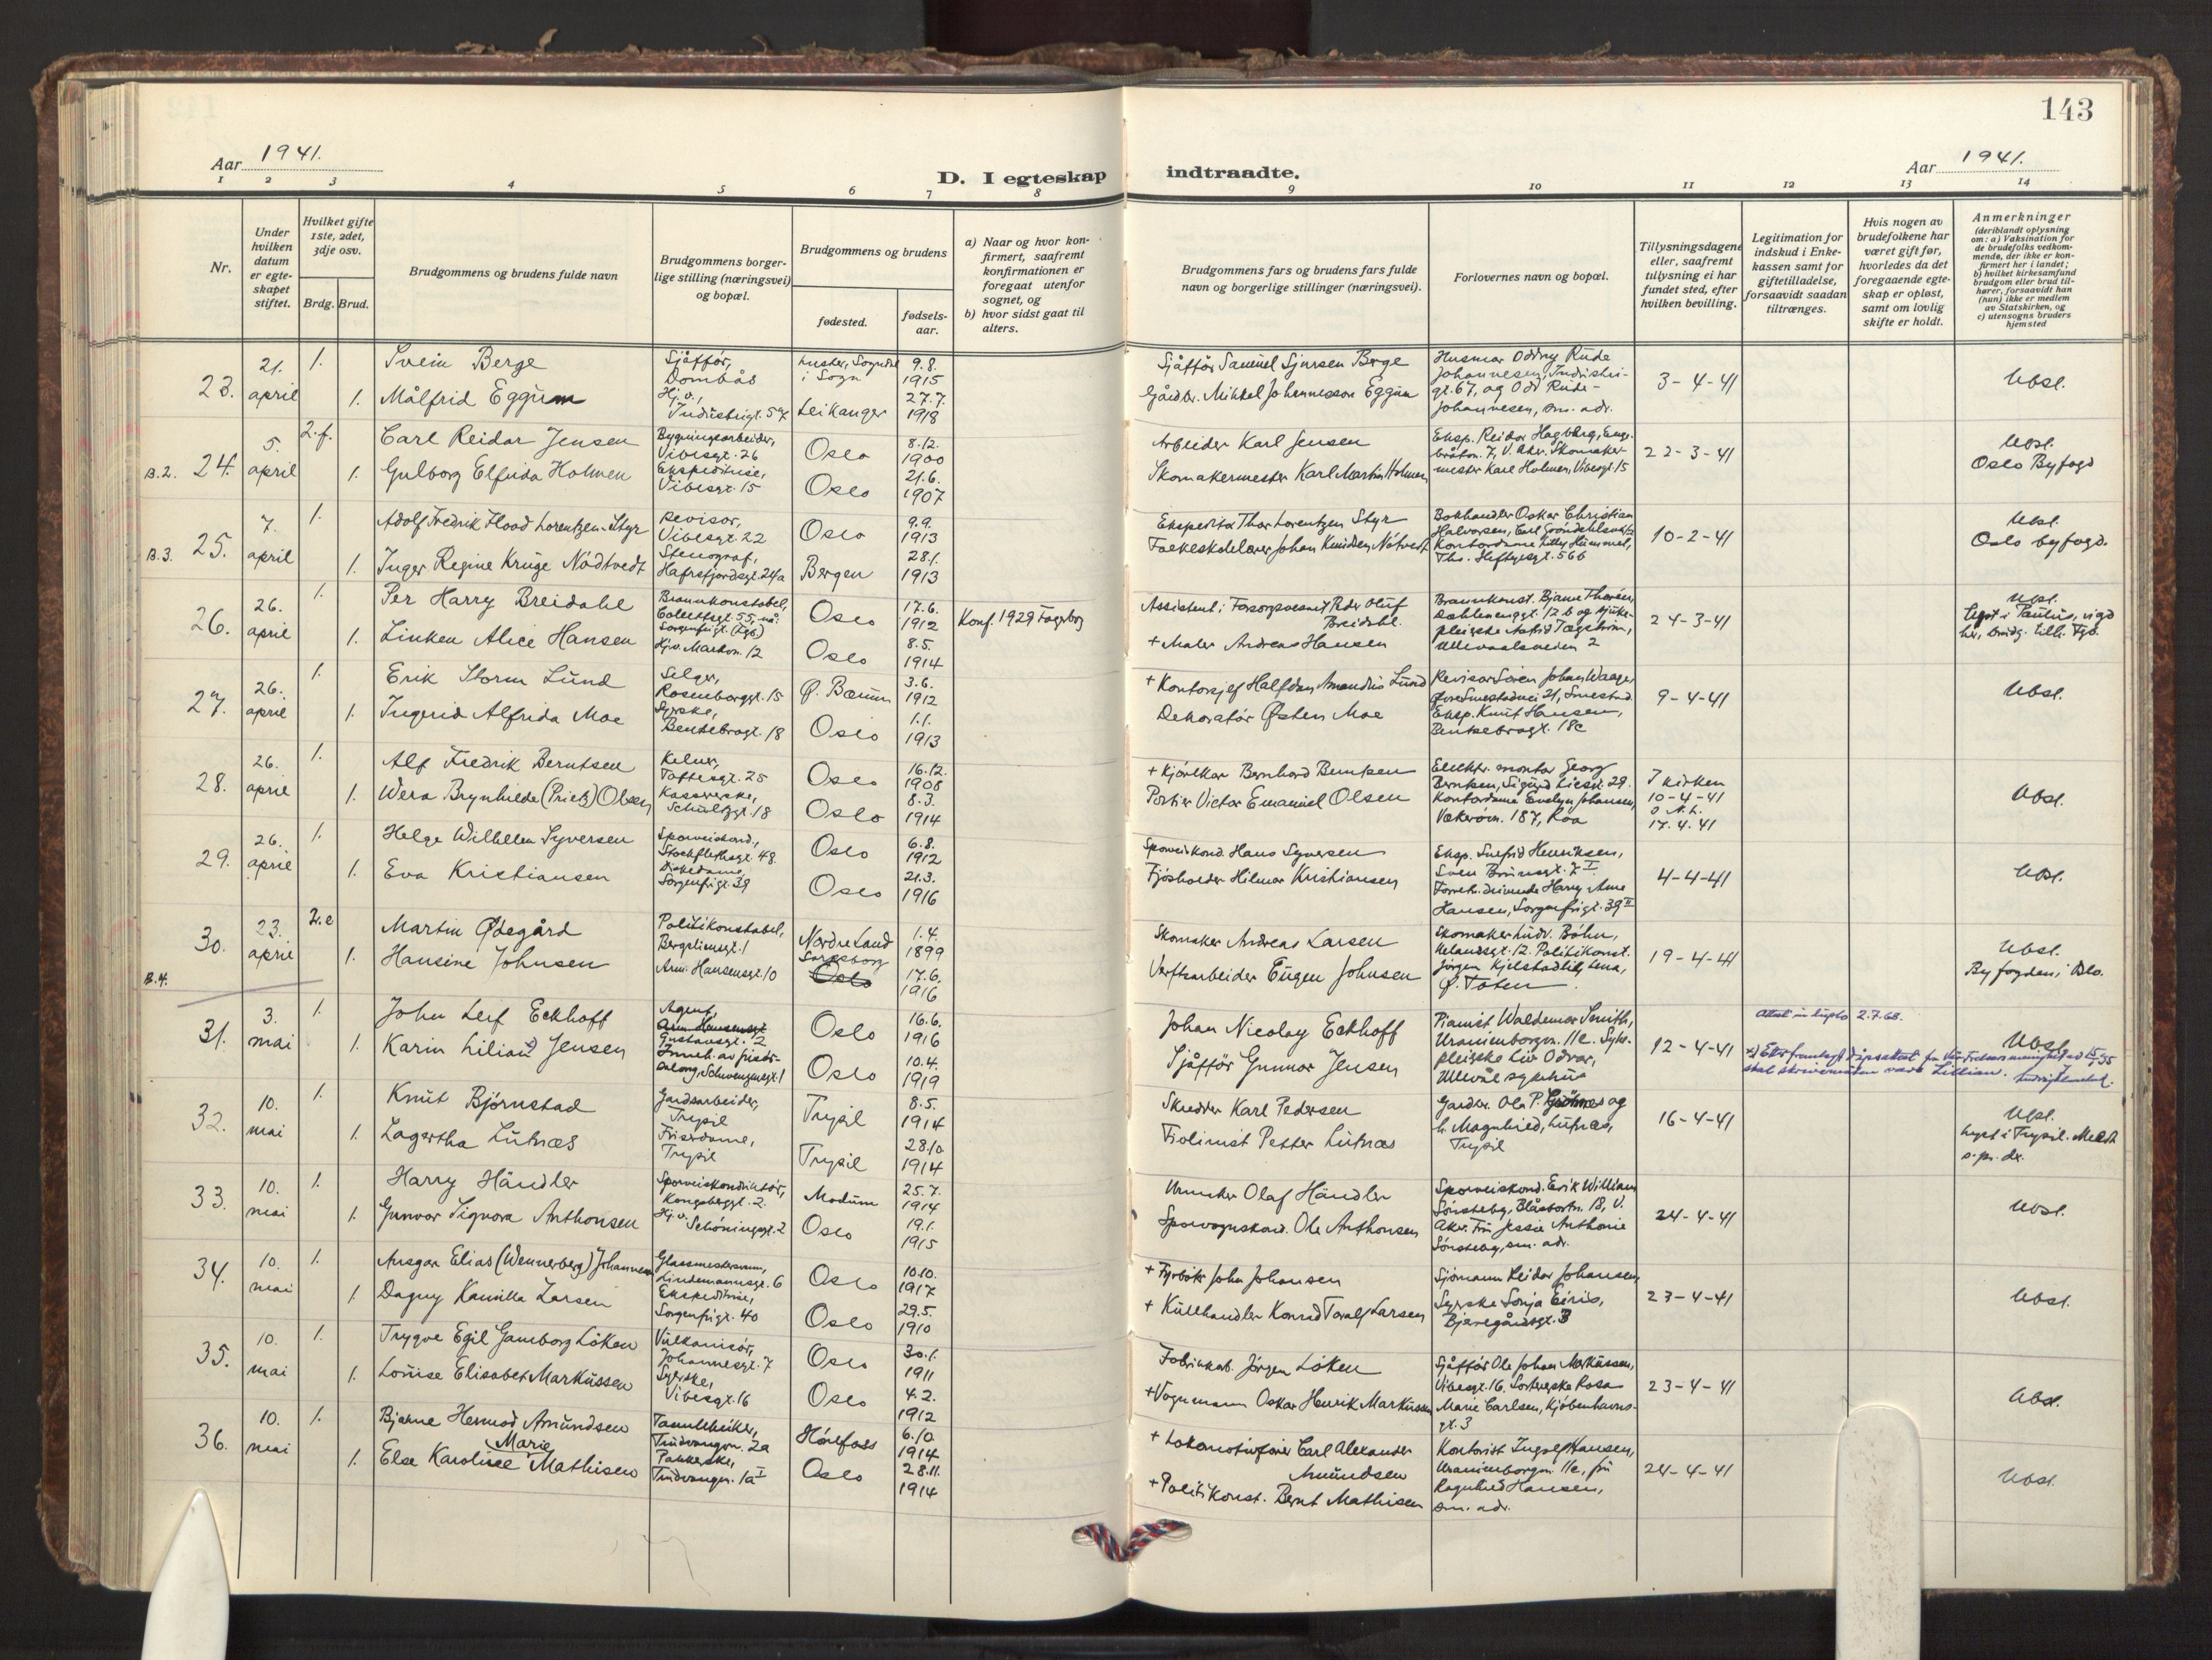 143
Aar 1941.
D. I egteskap indtraadte.
Aar 1941.
1 2 3 4 5 6 7 8 9 10 11 12 13 14
Nr.
Under hvilken datum er egteskapet stiftet.
Hvilket gifte 1ste, 2det, 3dje osv.
Brdg. Brud.
Brudgommens og brudens fulde navn
Brudgommens borgerlige stilling (næringsvei) og bopæl.
Brudgommens og brudens
fødested.
fødselsaar.
a) Naar og hvor konfirmert, saafremt konfirmationen er foregaat utenfor sognet, og
b) hvor sidst gaat til alters.
Brudgommens fars og brudens fars fulde navn og borgerlige stillinger (næringsvei).
Forlovernes navn og bopæl.
Tillysningsdagene eller, saafremt tillysning ei har fundet sted, efter hvilken bevilling.
Legitimation for indskud i Enkekassen samt for giftetilladelse, forsaavidt saadan tiltrænges.
Hvis nogen av brudefolkene har været gift før, hvorledes da det foregaaende egteskap er opløst, samt om lovlig skifte er holdt.
Anmerkninger
(deriblandt oplysning om: a) Vaksination for de brudefolks vedkommende, der ikke er konfirmert her i landet; b) hvilket kirkesamfund brudgom eller brud tilhører, forsaavidt han (hun) ikke er medlem av Statskirken, og c) utensogns bruders hjemsted
23. 21. april 1. Svein Berge Sjåfför, Dombås Luster, Sogndal i Sogn 9.8. 1915 Sjåfför Samuel Sjursen Berge
1. Målfrid Eggum Hj.v., Industrigt. 57 Leikanger 27.7. 1918 Gårdbr. Mikkel Johannesson Eggum
Husmor Oddny Rude Johannesen, Industrigt. 67, og Odd Rude-Johannesen, sm. adr. 3-4-41 Ubsl.
B.2. 24. 5. april 2.f. Carl Reidar Jensen Bygningsarbeider, Vibesgt. 26 Oslo 8.12. 1900 Arbeider Karl Jensen
1. Gulborg Elfrida Holmen Ekspeditrise, Vibesgt. 15 Oslo 21.6. 1907 Skomakermester Karl Martin Holmen
Eksp. Reidar Hagberg, 7, V. Aker. Skomakermester Karl Holmen, Vibesgt. 15 22-3-41 Ubsl. Oslo Byfogd
B.3. 25. 7. april 1. Adolf Fredrik Flood Lorentzen-Styr Revisor, Vibesgt. 22 Oslo 9.9. 1913 Ekspeditör Thor Lorentzen Styr
1. Inger Regine Krüge Nödtvedt Stenograf, Hafrsfjordsgt. 24a Bergen 28.1. 1913 Folkeskolelærer Johan Knudsen Nötvedt
Bokhandler Oskar Christian Halvorsen, Kontordame Lilly Hummel, Tho. Heftyesgt. 56b 10-2-41 Ubsl. Oslo byfogd.
26. 26. april 1. Per Harry Breidahl Brannkonstabel, Colletts gt. 55, nå: Sorgenfrigt. (Fgb.) Oslo 17.6. 1912 Konf. 1929 Fagerborg Assistent i Forsorgsvesenet Peder Oluf Breidahl.
1. Linken Alice Hansen Hj.v. Markvn. 12 Oslo 8.5. 1914 + Maler Andreas Hansen
Brannkonst. Bjarne Thoresen, Dahlenenggt. 12 b og sykepleierske Astrid Tægström, Ullevaalsveien 2 24-3-41 Ubsl. Lyst i Paulus, vigd her, brudg. tilh. Fgb.
27. 26. april 1. Erik Storm Lund Selger, Rosenborggt. 15 Ø. Bærum 3.6. 1912 + Kontorsjef Halfdan Amandus Lund
1. Ingerid Alfrida Moe Syerske, Bentsebrogt. 18 Oslo 1.1. 1913 Dekoratör Østen Moe
Revisor Sören Johan Waager, Øvre Smestadvei 21, Smestad. Eksp. Knut Hansen, Bentsebrogt. 18c 9-4-41 Ubsl.
28. 26. april 1. Alf Fredrik Berntsen Kelner, Toftesgt. 25 Oslo 16.12. 1908 + Kjörekar Bernhard Berntsen
1. Wera Brynhilde (Prietz) Olsen Kassererske, Schultzgt. 18 Oslo 8.3. 1914 Portier Victor Emanuel Olsen
Elektr. montör Georg Berntsen, Sigurd Liesn. 29. Kontordame Evelyn Johansen, Vækerøvn. 187, Röa I kirken 10-4-41 O.N.L. 17.4.41 Ubsl.
29. 26. april 1. Helge Wilhelm Syversen Sporveiskond., Stockflethsgt. 48 Oslo 6.8. 1912 Sporveiskond. Hans Syversen
1. Eva Kristiansen Diskedame, Sorgenfrigt. 39 Oslo 21.3. 1916 Fjösholder Hilmar Kristiansen
Eksp. Snefrid Henriksen, Sven Brunsgt. 7 I Forretn. drivende Harry Arne Hansen, Sorgenfrigt. 39 II 4-4-41 Ubsl.
B.4. 30. 23. april 2.e Martin Ødegård Politikonstabel, Bergsliensgt. 1 Nordre Land 1.4. 1899 Skomaker Andreas Larsen
1. Hansine Johnsen Arni Hansensgt. 10 Sarpsborg Oslo 17.6. 1916 Verftsarbeider Eugen Johnsen
Skomaker Ludv. Böhn, Helandsgt. 12. Politikonst. Jörgen Kjelstadlie, Lena, Ø. Toten 19-4-41 Ubsl. Byfogden i Oslo.
31. 3. mai 1. John Leif Eckhoff Agent, Gustavsgt. 2 Oslo 16.6. 1916 Johan Nicolay Eckhoff
1. Karin Lilian Jensen Inneh. av frisörsalong, Schwensensgt. 1 Oslo 10.4. 1919 Sjåfför Gunnar Jensen
Pianist Waldemar Smith, Uranienborgvn. 11c. Sykepleierske Liv Odvar, Ullevål sykehus 12-4-41 2.7.68. Ubsl.
skal skrivemåten være Lillian.
32. 10. mai 1. Knut Björnstad Gardsarbeider, Trysil Trysil 8.5. 1914 Skredder Karl Pedersen
1. Lagertha Lutnæs Friserdame, Trysil Trysil 28.10 1914 Fiolinist Petter Lutnæs
Gardbr. Ola P. og h. Magnhild, Lutnæs, Trysil 16-4-41 Ubsl. Lyst i Trysil.
33. 10. mai 1. Harry Händler Sporveiskonduktör, Kongsberggt. 2. Modum 25.7. 1914 Urmaker Olaf Händler
1. Gunvor Signora Anthonsen Hj.v. Schöningsgt. 2 Oslo 19.1. 1915 Sporvognskond. Ole Anthonsen
Sporveiskond. Erik William Sönsteby, Blåsbortn. 13, V. Aker. Fru Jessie Anthonie Sönsteby, sm. adr. 24-4-41 Ubsl.
34. 10. mai 1. Ansgar Elias (Wennerberg) Johannesen Glassmestersvenn, Lindemannsgt. 6 Oslo 10.10. 1917 + Fyrböter John Johansen
1. Dagny Kamilla Larsen Ekspeditrise, Sorgenfrigt. 40 Oslo 29.5. 1910 + Kullhandler Konrad Toralf Larsen
Sjömann Reidar Johansen, Syerske Sonja Eiriis, Bjerregårdsgt. 3 23-4-41 Ubsl.
35. 10. mai 1. Trygve Egil Gamborg Löken Vulkanisör, Johannesgt. 7 Oslo 30.1. 1911 Fabrikkarb. Jörgen Löken
1. Louise Elisabet Markussen Syerske, Vibesgt. 16 Oslo 4.2. 1912 + Vognmann Oskar Henrik Markussen
Sjåfför Ole Johan Markussen, Vibesgt. 16. Sorterske Rosa Marie Carlsen, Kjöbenhavnsgt. 3 23-4-41 Ubsl.
36. 10. mai 1. Bjarne Hermod Amundsen Tanntekniker, Trudvangvn. 2a Hönefoss 6.10. 1914 + Lokomotivförer Carl Alexander Amundsen
1. Else Karoline Marie Mathisen Pakkerske, Trudvangvn. 1a I Oslo 28.11. 1914 + Politikonst. Bernt Mathisen
Kontorist Ingolf Hansen, Uranienborgvn. 11c, fru Ragnhild Hansen, sm. adr. 24-4-41 Ubsl.